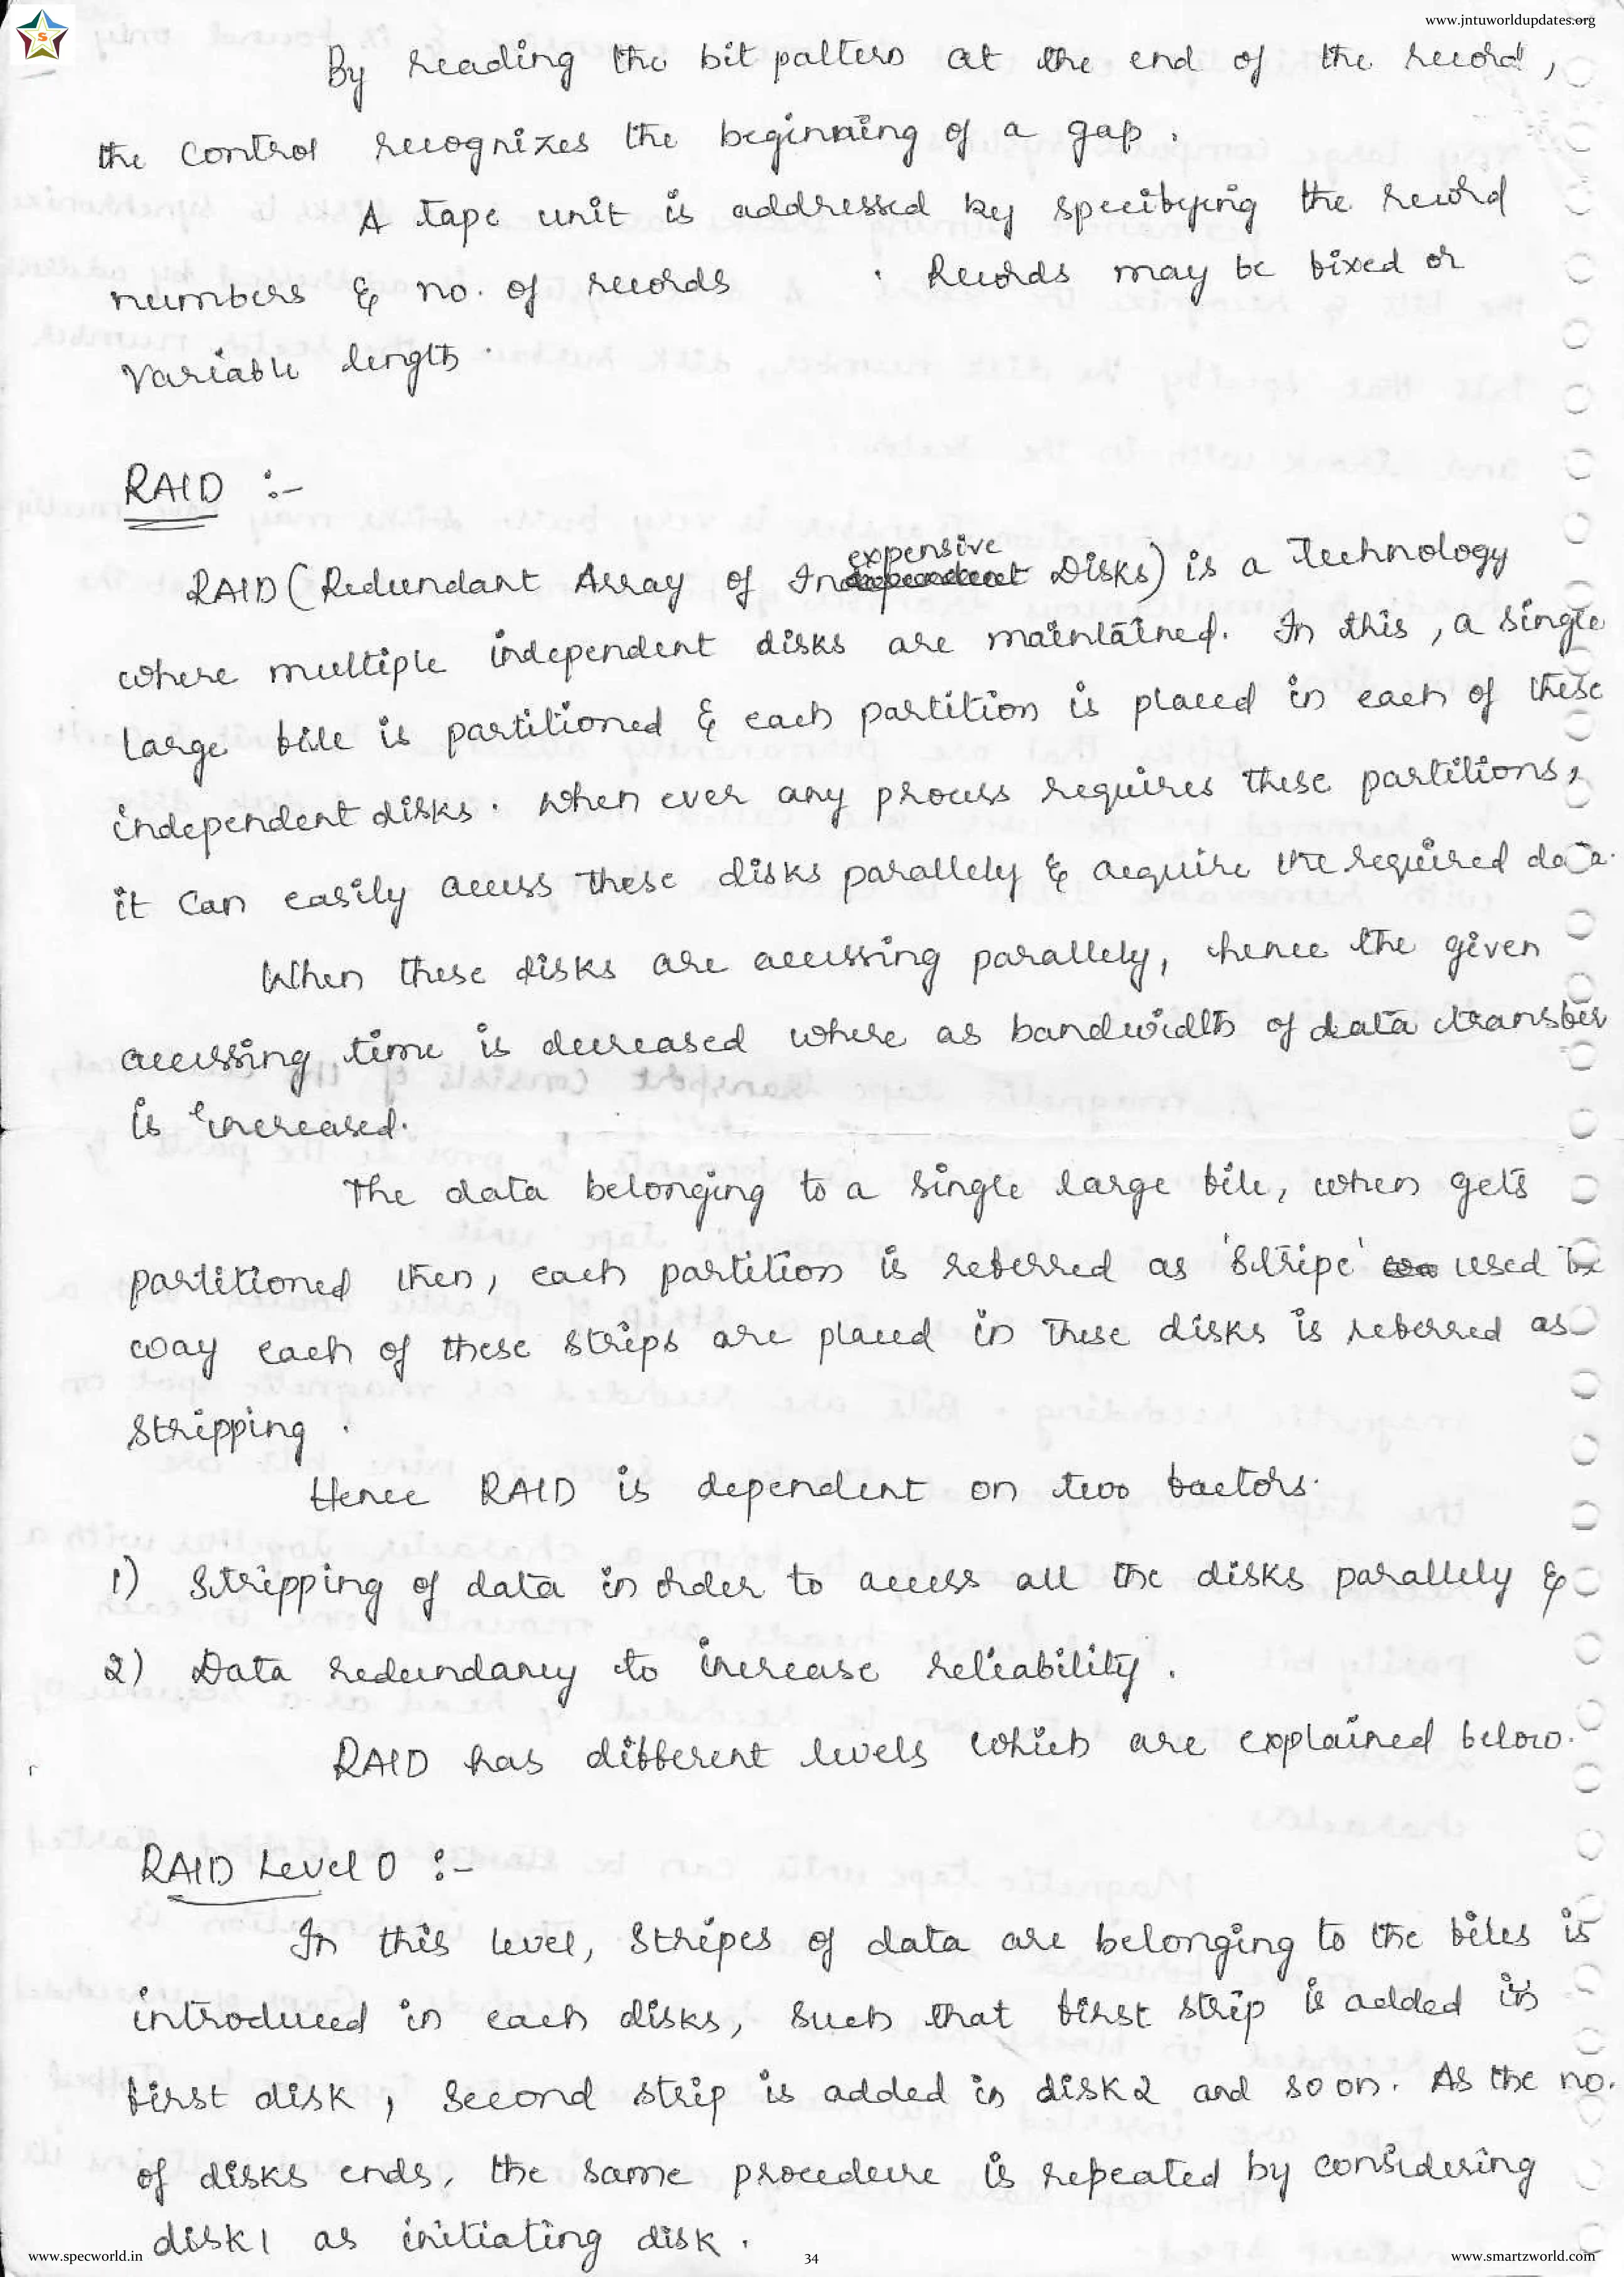 www.jntuworldupdates.org
S
By reading the bit pattern at the end of the record,
the control recognizes the beginning of a gap.
A tape unit is addressed by specifying the record
numbers & no. of records . Records may be fixed or
variable length.
RAID :-
expensive
RAID (Redundant Array of Independent Disks) is a Technology
where multiple independent disks are maintained. In this, a single
large file is partitioned & each partition is placed in each of these
independent disks. When ever any process requires these partitions,
it can easily access these disks parallely & acquire the required data.
When these disks are accessing parallely, hence the given
accessing time is decreased where as bandwidth of data transfer
is increased.
The data belonging to a single large file, when gets
partitioned then, each partition is referred as 'Stripe' used
way each of these strips are placed in these disks is referred as
stripping.
Hence RAID is dependent on two factors.
1) Stripping of data in order to access all the disks parallely &
2) Data redundancy to increase reliability.
RAID has different levels which are explained below.
RAID Level 0 :-
In this level, stripes of data are belonging to the files is
introduced in each disks, such that first strip is added in
first disk, second strip is added in disk2 and so on. As the no.
of disks ends, the same procedure is repeated by considering
disk1 as initiating disk.
www.specworld.in
34
www.smartzworld.com